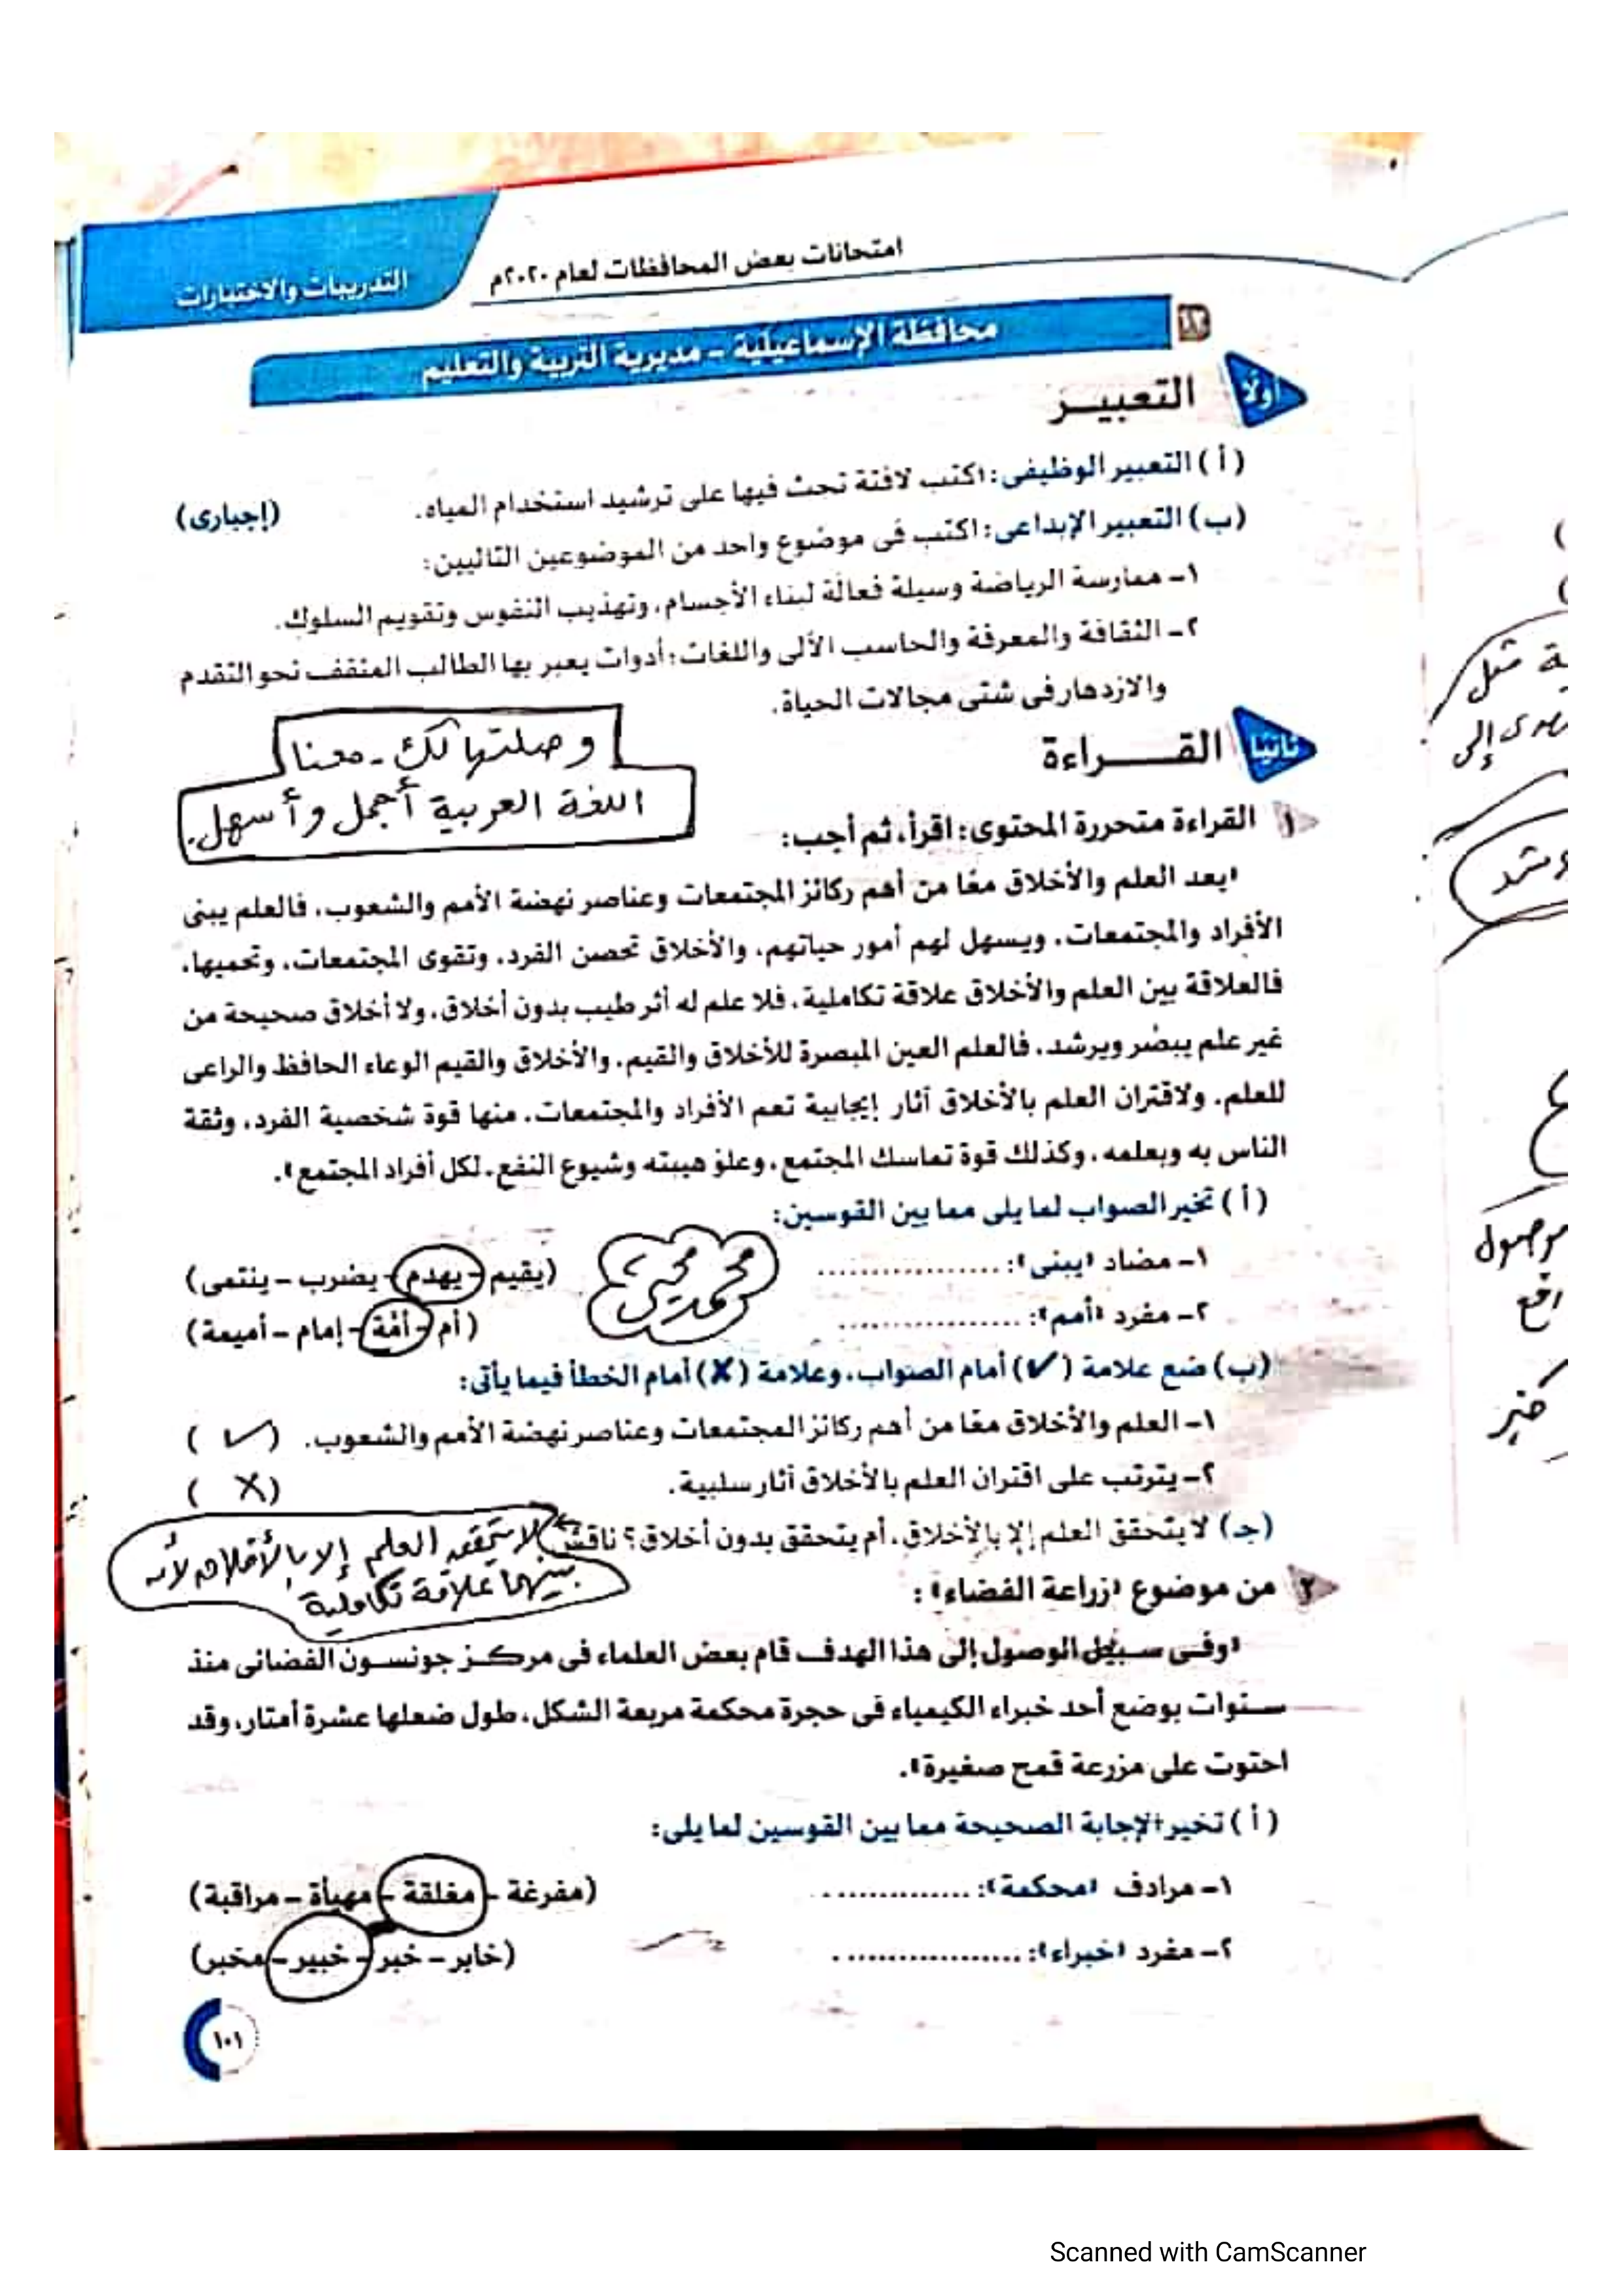 امتحانات بعض المحافظات لعام ٢٠٢٠م
التدريبات والاختبارات
١٢
محافظة الإسماعيلية - مديرية التربية والتعليم
أولًا
التعبيـر
(أ) التعبير الوظيفى: اكتب لافتة تحث فيها على ترشيد استخدام المياه.
(إجبارى)
(ب) التعبير الإبداعى: اكتب فى موضوع واحد من الموضوعين التاليين:
١- ممارسة الرياضة وسيلة فعالة لبناء الأجسام، وتهذيب النفوس وتقويم السلوك.
٢- الثقافة والمعرفة والحاسب الآلى واللغات؛ أدوات يعبر بها الطالب المثقف نحو التقدم
والازدهار فى شتى مجالات الحياة.
ثانيًا
القـــراءة
وصلتها لك - معنا
اللغة العربية أجمل وأسهل.
١ القراءة متحررة المحتوى: اقرأ، ثم أجب:
«يعد العلم والأخلاق معًا من أهم ركائز المجتمعات وعناصر نهضة الأمم والشعوب، فالعلم يبنى
الأفراد والمجتمعات، ويسهل لهم أمور حياتهم، والأخلاق تحصن الفرد، وتقوى المجتمعات، وتحميها،
فالعلاقة بين العلم والأخلاق علاقة تكاملية، فلا علم له أثر طيب بدون أخلاق، ولا أخلاق صحيحة من
غير علم يبصِّر ويرشد، فالعلم العين المبصرة للأخلاق والقيم، والأخلاق والقيم الوعاء الحافظ والراعى
للعلم، ولاقتران العلم بالأخلاق آثار إيجابية تعم الأفراد والمجتمعات، منها قوة شخصية الفرد، وثقة
الناس به وبعلمه، وكذلك قوة تماسك المجتمع، وعلوّ هيبته وشيوع النفع، لكل أفراد المجتمع».
(أ) تخير الصواب لما يلى مما بين القوسين:
١- مضاد «يبنى»: .................. (يقيم - يهدم - يضرب - ينتمى)
محمد محيى
٢- مفرد «أمم»: .................. (أم - أمَّة - إمام - أميمة)
(ب) ضع علامة (✓) أمام الصواب، وعلامة (✗) أمام الخطأ فيما يأتى:
١- العلم والأخلاق معًا من أهم ركائز المجتمعات وعناصر نهضة الأمم والشعوب. (✓)
٢- يترتب على اقتران العلم بالأخلاق آثار سلبية. (X)
(جـ) لا يتحقق العلم إلا بالأخلاق، أم يتحقق بدون أخلاق؟ ناقش
لا يتحقق العلم إلا بالأخلاق لأنه
بينهما علاقة تكاملية
٢ من موضوع «زراعة الفضاء»:
«وفى سبيل الوصول إلى هذا الهدف قام بعض العلماء فى مركز جونسون الفضائى منذ
سنوات بوضع أحد خبراء الكيمياء فى حجرة محكمة مربعة الشكل، طول ضعلها عشرة أمتار، وقد
احتوت على مزرعة قمح صغيرة».
(أ) تخير الإجابة الصحيحة مما بين القوسين لما يلى:
١- مرادف «محكمة»: ............... (مفرغة - مغلقة - مهيأة - مراقبة)
٢- مفرد «خبراء»: .................. (خابر - خبر - خبير - مخبر)
١٠١
ية مثل
إلى
موصول
Scanned with CamScanner